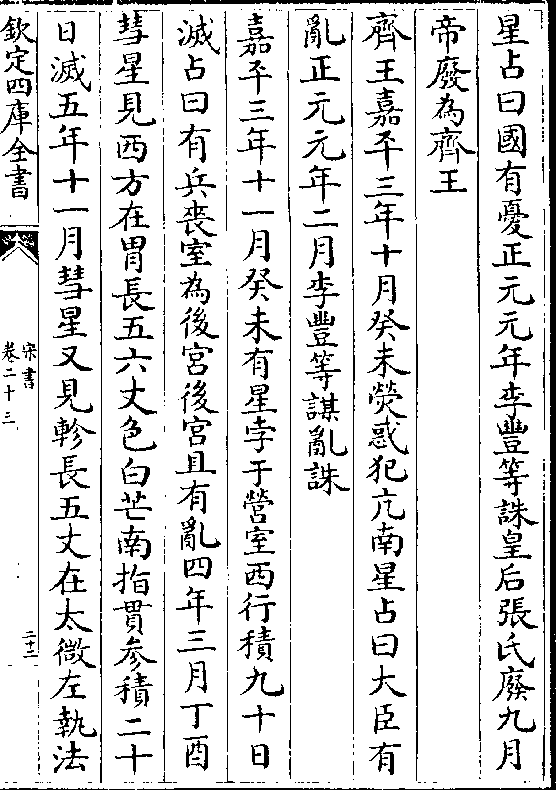 星占曰國有憂正元元年李豐等誅皇后張氏廢九月
帝廢為齊王
齊王嘉平三年十月癸未熒惑犯亢南星占曰大臣有
亂正元元年二月李豐等謀亂誅
嘉平三年十一月癸未有星孛于營室西行積九十日
滅占曰有兵喪室為後宮後宮且有亂四年三月丁酉
彗星見西方在胃長五六丈色白芒南指貫參積二十
日滅五年十一月彗星又見軫長五丈在太微左執法
欽定四庫全書
宋書
卷二十三
二十二